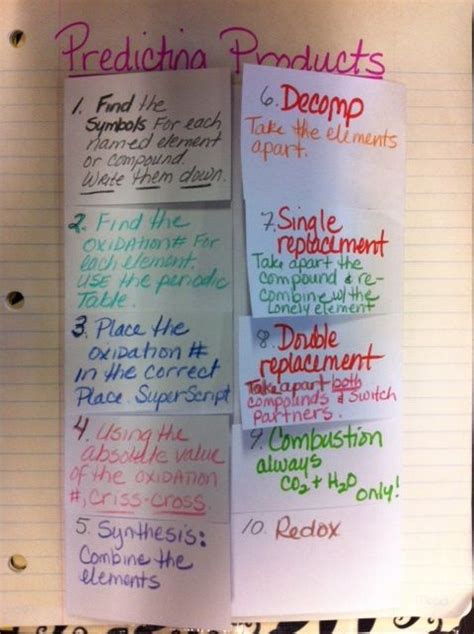 Predicting Products
1. Find the
Symbols For each
named element
or compound.
Write them down.
2. Find the
OXIDATION # For
each element.
USE the periodic
Table.
3. Place the
OXIDATION #
in the correct
Place. SuperScript
4. Using the
absolute value
of the OXIDATION
#, criss-cross.
5. Synthesis:
Combine the
elements
6. Decomp
Take the elements
apart.
7. Single
replacement
Take apart the
compound & re-
combine w/ the
Lonely element
8. Double
replacement
Take apart both
compounds & Switch
partners.
9. Combustion
always
CO2 + H2O
only!
10. Redox
Mead